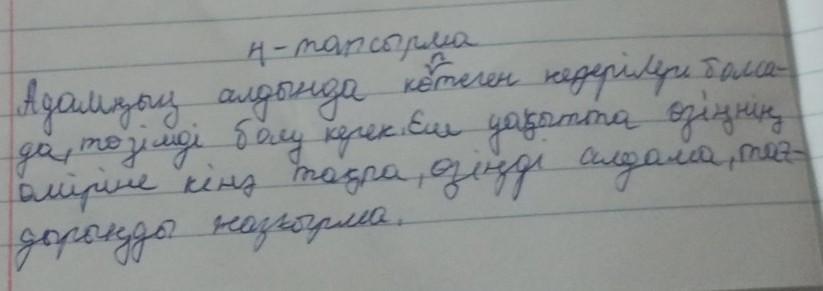 4-тапсырма
Адамның алдында көптеген кедергілері болса-
да, төзімді болу керек. Еш уақытта өзіңнің
өміріңе кінә тақпа, өзіңді алдама, тағ-
дырыңды жазғырма.